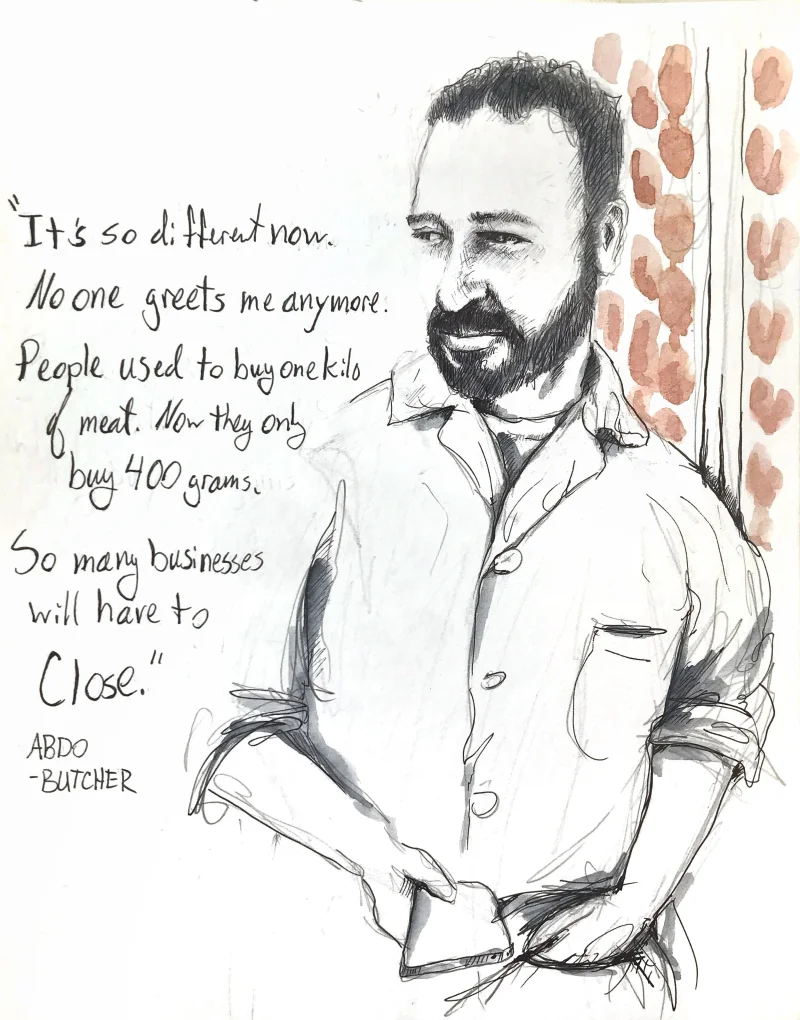 "It's so different now.
No one greets me anymore.
People used to buy one kilo
of meat. Now they only
buy 400 grams.
So many businesses
will have to
Close."
ABDO
-BUTCHER